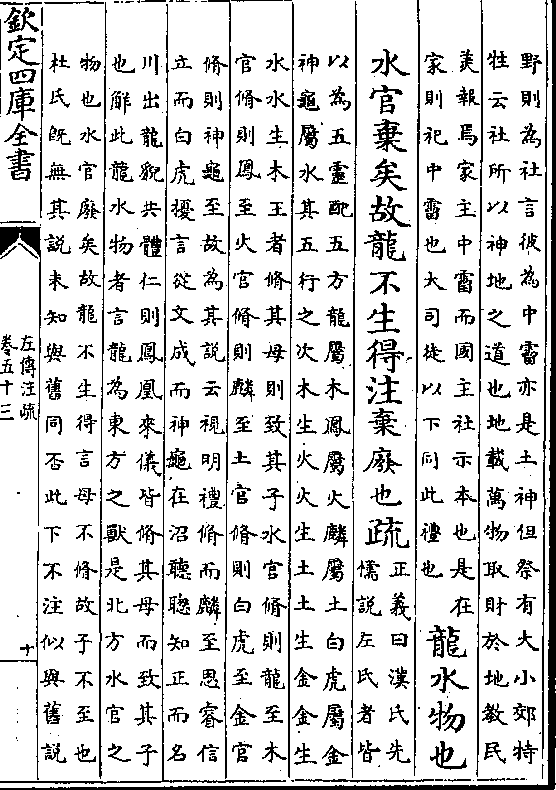 野則為社言彼為中霤亦是土神但祭有大小郊特
牲云社所以神地之道也地載萬物取財於地教民
美報焉家主中霤而國主社示本也是在
家則祀中霤也大司徒以下同此禮也
龍水物也
水官棄矣故龍不生得注棄廢也疏
正義曰漢氏先
儒説左氏者皆
以為五靈配五方龍屬木鳳屬火麟屬土白虎屬金
神龜屬水其五行之次木生火火生土土生金金生
水水生木王者脩其母則致其子水官脩則龍至木
官脩則鳳至火官脩則麟至土官脩則白虎至金官
脩則神龜至故為其説云視明禮脩而麟至思睿信
立而白虎擾言從文成而神龜在沼聽聰知正而名
川出龍貌共體仁則鳳凰來儀皆脩其母而致其子
也解此龍水物者言龍為東方之獸是北方水官之
物也水官廢矣故龍不生得言母不脩故子不至也
杜氏既無其説未知與舊同否此下不注似與舊説
欽定四庫全書
左傳注疏
卷五十三
十